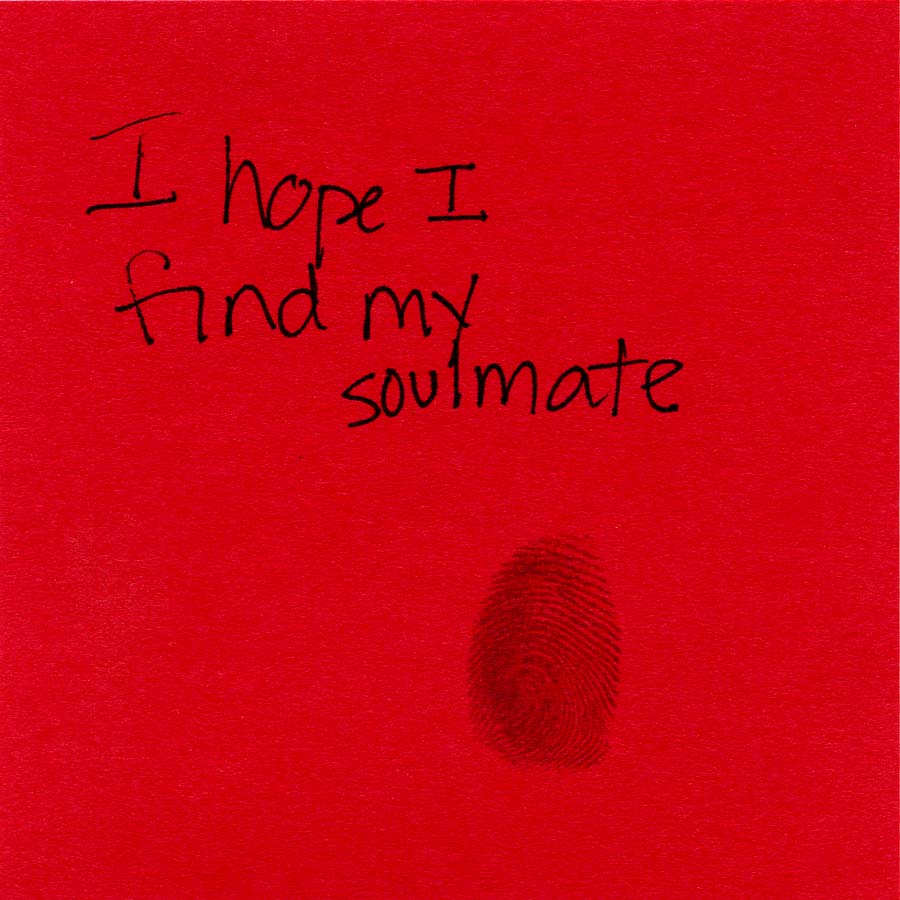 I hope I
find my
soulmate